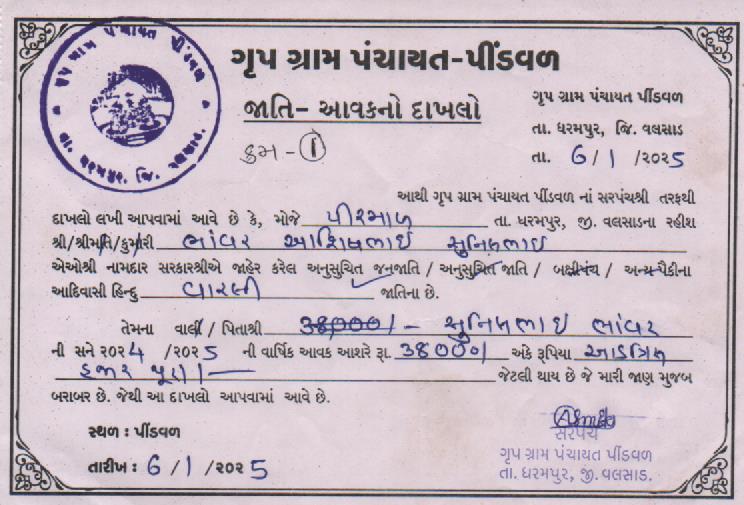 ગૃપ ગ્રામ પંચાયત પીંડવળ
તા. ધરમપુર. જિ. વલસાડ.
ગૃપ ગ્રામ પંચાયત-પીંડવળ
જાતિ– આવકનો દાખલો
ક્રમ - ①
ગૃપ ગ્રામ પંચાયત પીંડવળ
તા. ધરમપુર, જિ. વલસાડ
તા. 6/1/૨૦૨5
આથી ગૃપ ગ્રામ પંચાયત પીંડવળ નાં સરપંચશ્રી તરફથી
દાખલો લખી આપવામાં આવે છે કે, મોજે પીરમાળ તા. ધરમપુર, જી. વલસાડના રહીશ
શ્રી/શ્રીમતિ/કુમારી ભાંવર આશિષભાઈ સુનિલભાઈ
એઓશ્રી નામદાર સરકારશ્રીએ જાહેર કરેલ અનુસુચિત જનજાતિ / અનુસુચિત જાતિ / બક્ષીપંચ / અન્ય પૈકીના
આદિવાસી હિન્દુ વારલી જાતિના છે.
તેમના વાલી / પિતાશ્રી 38,000/- સુનિલભાઈ ભાંવર
ની સને ૨૦૨4 /૨૦૨5 ની વાર્ષિક આવક આશરે રૂા. 38000/ અંકે રૂપિયા આડત્રિસ
હજાર પૂરા/- જેટલી થાય છે જે મારી જાણ મુજબ
બરાબર છે. જેથી આ દાખલો આપવામાં આવે છે.
સ્થળ : પીંડવળ
તારીખ : 6/1/૨૦૨5
સરપંચ
ગૃપ ગ્રામ પંચાયત પીંડવળ
તા. ધરમપુર, જી. વલસાડ.